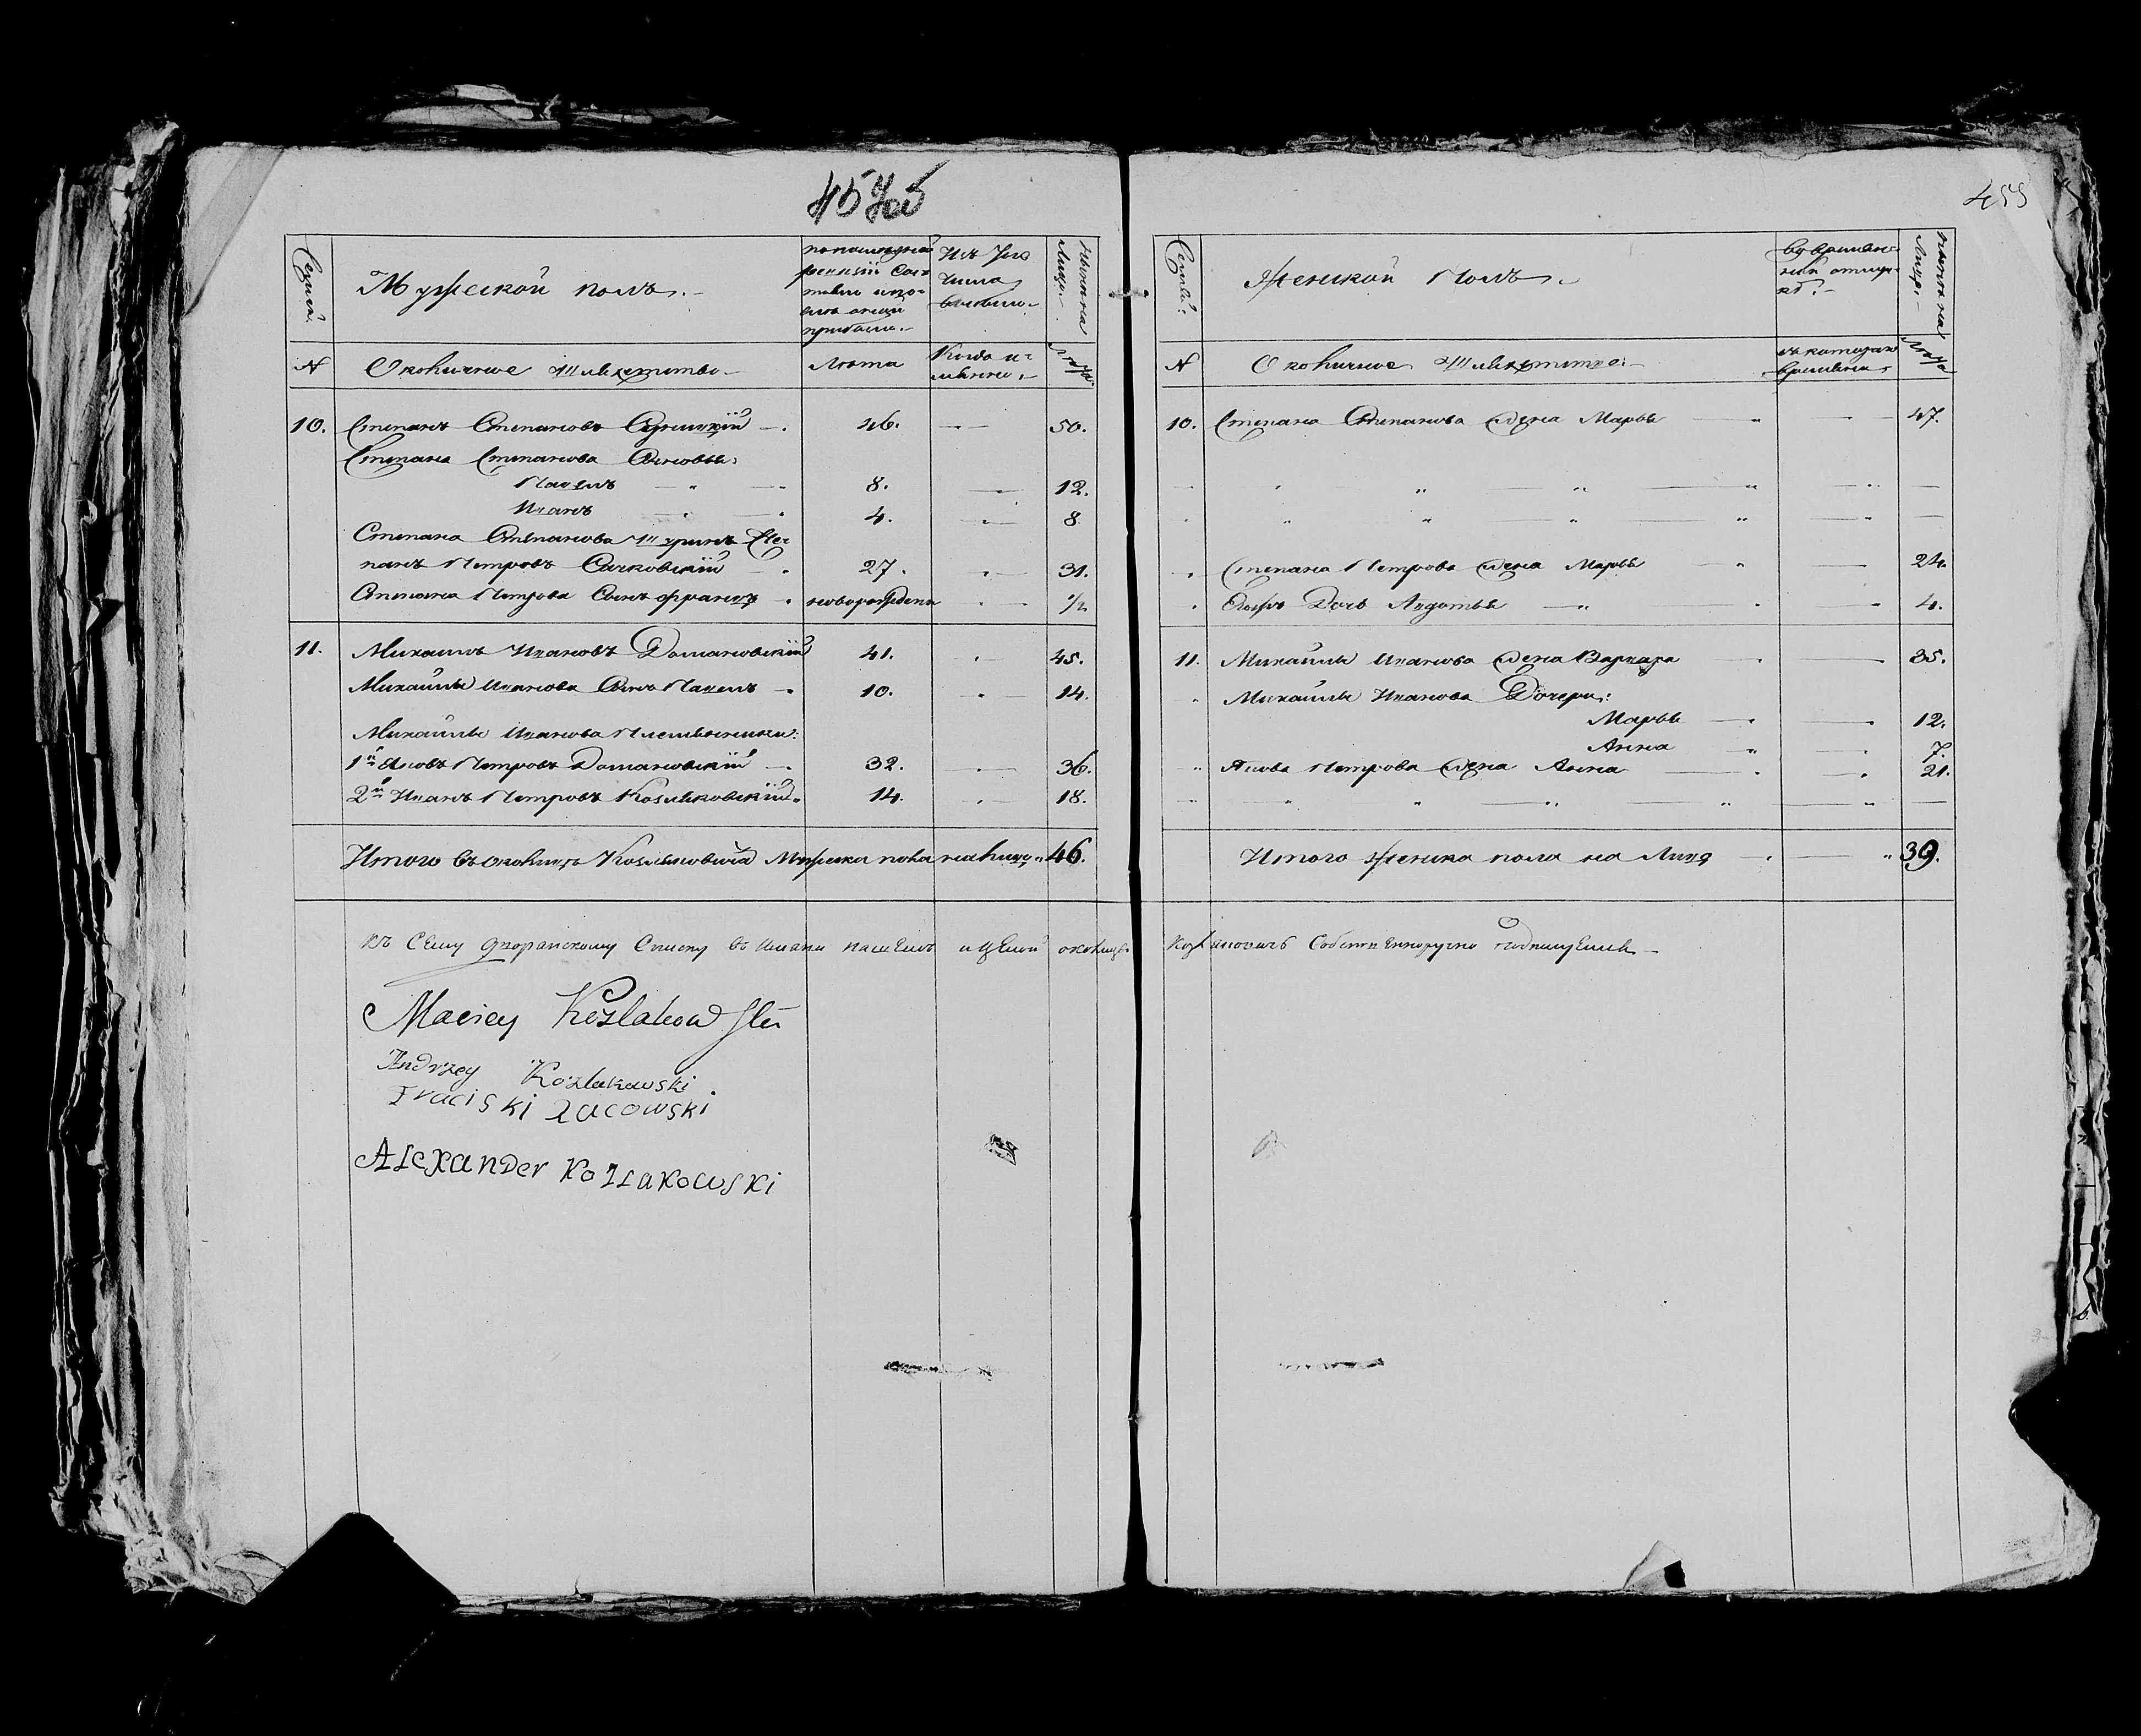 457об
455
Семей.
Мужеской полъ.
по последней
ревизіи сос-
тояло и по-
слѣ оной
прибыло.
Изъ того
числа
выбыло.
Нынѣ на
лицо.
№
Околичное Шляхетство.
Лѣта
Когда и-
мянно.
Лѣта.
10. Степанъ Степановъ 46. 50.
Степана Степанова Сыновья:
Павелъ 8. 12.
Иванъ 4. 8.
Степана Степанова Шуринъ Сте-
панъ Петровъ Сачковскій 27. 31.
Степана Петрова Сынъ Францъ новорожденъ 1/2
11. Михаилъ Ивановъ Домановскій 41. 45.
Михайлы Иванова Сынъ Павелъ 10. 14.
Михайлы Иванова Племянники:
1й Яковъ Петровъ Домановскій 32. 36.
2й Иванъ Петровъ Козляковскій 14. 18.
Итого въ околицѣ Козляковича Мужеска пола на лицо 46.
Семьи.
Женской Полъ.
во времян-
ной отлуч-
кѣ.
Нынѣ на
лицо.
№
Околичное Шляхетство.
съ котораго
времяни
Лѣта
10. Степана Степанова Жена Марья 47.
Степана Петрова Жена Марья 24.
Ихъ Дочь Авдотья 4.
11. Михайлы Иванова Жена Варвара 35.
Михайлы Иванова Дочери:
Марья 12.
Анна 7.
Якова Петрова Жена Анна 21.
Итого Женска пола на Лицо 39.
Къ сему дворанскому Списку въ имани нашемъ и целой околицы Козляковичь Собственноручно подписуемся
Maciey Kozlakowski
Andrzey Kozlakowski
Fraciski Zacowski
Alexander Kozlakowski